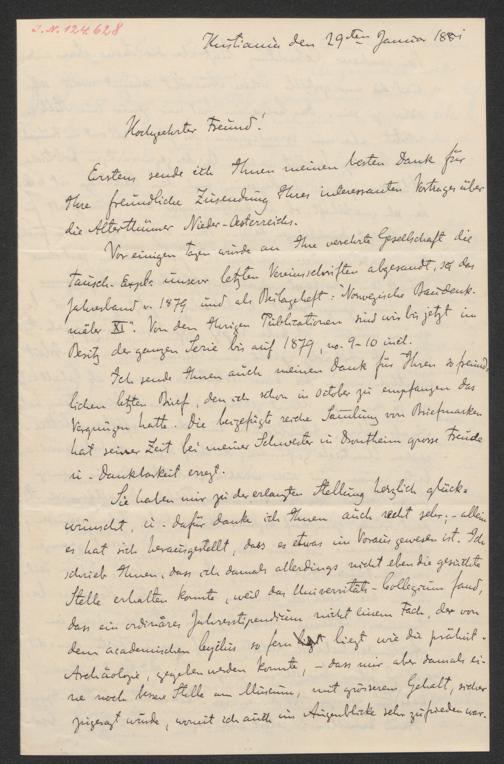 J. N. 124.628
Kristiania den 29ten Januar 1881
Hochgeehrter Freund!
Erstens sende ich Ihnen meinen besten Dank für
Ihre freundliche Zusendung Ihres interessanten Vortrages über
die Alterthümer Nieder-Oesterreichs.
Vor einigen Tagen wurde an Ihre verehrte Gesellschaft die
Tausch-Expl. unserer letzten Vereinsschriften abgesandt, das
Jahresband v. 1879 und als Beilageheft: "Norwegische Baudenk-
mäler XI". Von den Ihrigen Publicationen sind wir bis jetzt im
Besitz der ganzen Serie bis auf 1879, no. 9-10 incl.
Ich sende Ihnen auch meinen Dank für Ihren so freund-
lichen letzten Brief, den ich schon in October zu empfangen das
Vergnügen hatte. Die beigefügte reiche Samlung von Briefmarken
hat seiner Zeit bei meiner Schwester in Drontheim grosse Freude
u. Dankbarkeit erregt.
Sie haben mir zu der erlangten Stellung herzlich glück-
wünscht, u. dafür danke ich Ihnen auch recht sehr, - allein
es hat sich herausgestellt, dass es etwas im Voraus gewesen ist. Ich
schrieb Ihnen, dass ich damals allerdings nicht eben die gesuchte
Stelle erhalten konnte, weil das Universitäts-Collegium fand,
dass ein ordinäres Jahresstipendium nicht einem Fach, der von
dem academischen so fern liegt wie die prähist.
Archäologie, gegeben werden konnte, - dass mir aber damals ei-
ne noch bessere Stelle am Museum, mit grösserem Gehalt, sicher
zugesagt wurde, womit ich auch im Augenblicke sehr zufrieden war.